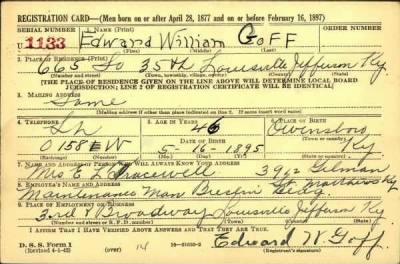 REGISTRATION CARD—(Men born on or after April 28, 1877 and on or before February 16, 1897)
SERIAL NUMBER 1. NAME (Print) ORDER NUMBER
U 1133 Edward William Goff
(First) (Middle) (Last)
2. PLACE OF RESIDENCE (Print)
665 So 35th Louisville Jefferson Ky.
(Number and street) (Town, township, village, or city) (County) (State)
[THE PLACE OF RESIDENCE GIVEN ON THE LINE ABOVE WILL DETERMINE LOCAL BOARD
JURISDICTION; LINE 2 OF REGISTRATION CERTIFICATE WILL BE IDENTICAL]
3. MAILING ADDRESS
Same
(Mailing address if other than place indicated on line 2. If same insert word same)
4. TELEPHONE 5. AGE IN YEARS 6. PLACE OF BIRTH
46 Owensboro
DATE OF BIRTH
0158 EW 5-16-1895 Ky
(Exchange) (Number) (Mo.) (Day) (Yr.) (State or country)
7. NAME AND ADDRESS OF PERSON WHO WILL ALWAYS KNOW YOUR ADDRESS
Mrs E L 3922 Gilman
St Matthews Ky
8. EMPLOYER'S NAME AND ADDRESS
Maintenance Man
9. PLACE OF EMPLOYMENT OR BUSINESS
3rd & Broadway Louisville Jefferson Ky
(Number and street or R. F. D. number) (Town) (County) (State)
I AFFIRM THAT I HAVE VERIFIED ABOVE ANSWERS AND THAT THEY ARE TRUE.
D. S. S. Form 1
(Revised 4-1-42) (over) Edward W. Goff
(Registrant's signature)